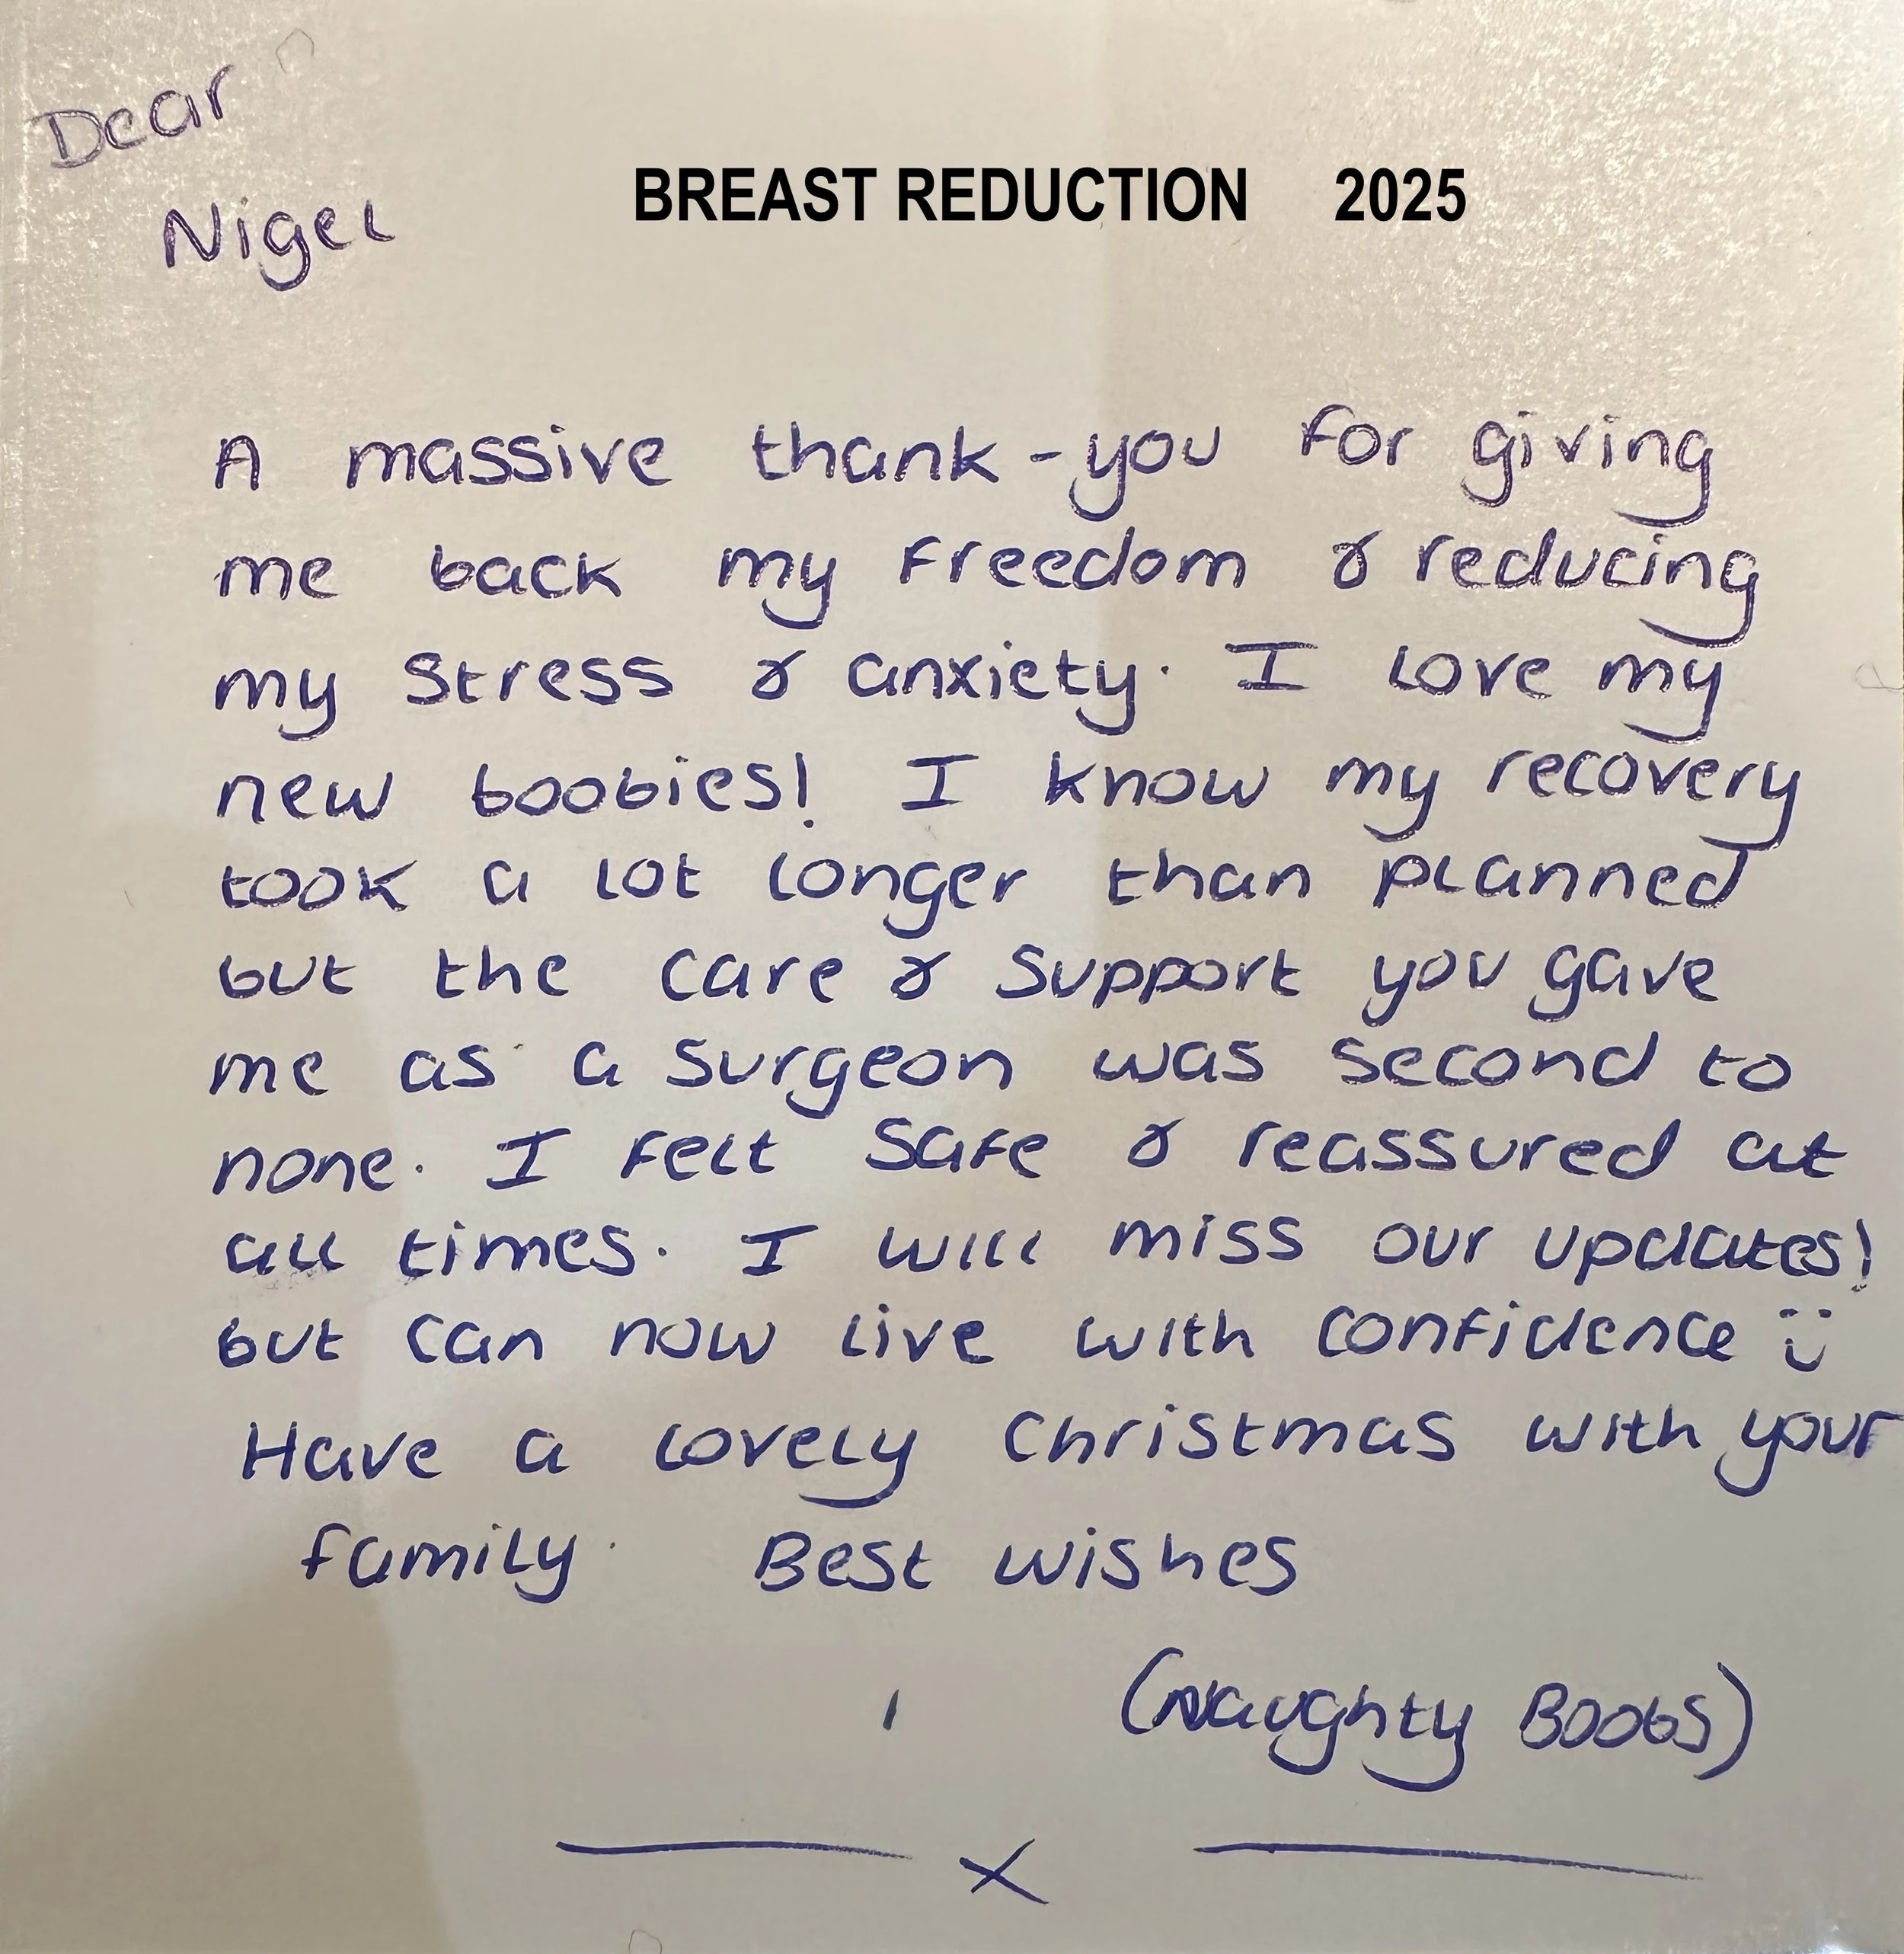 Dear
Nigel
BREAST REDUCTION 2025
A massive thank-you for giving
me back my freedom & reducing
my stress & anxiety. I love my
new boobies! I know my recovery
took a lot longer than planned
but the care & support you gave
me as a surgeon was second to
none. I felt safe & reassured at
all times. I will miss our updates!
but can now live with confidence ü
Have a lovely Christmas with your
family. Best wishes
(Naughty Boobs)
x